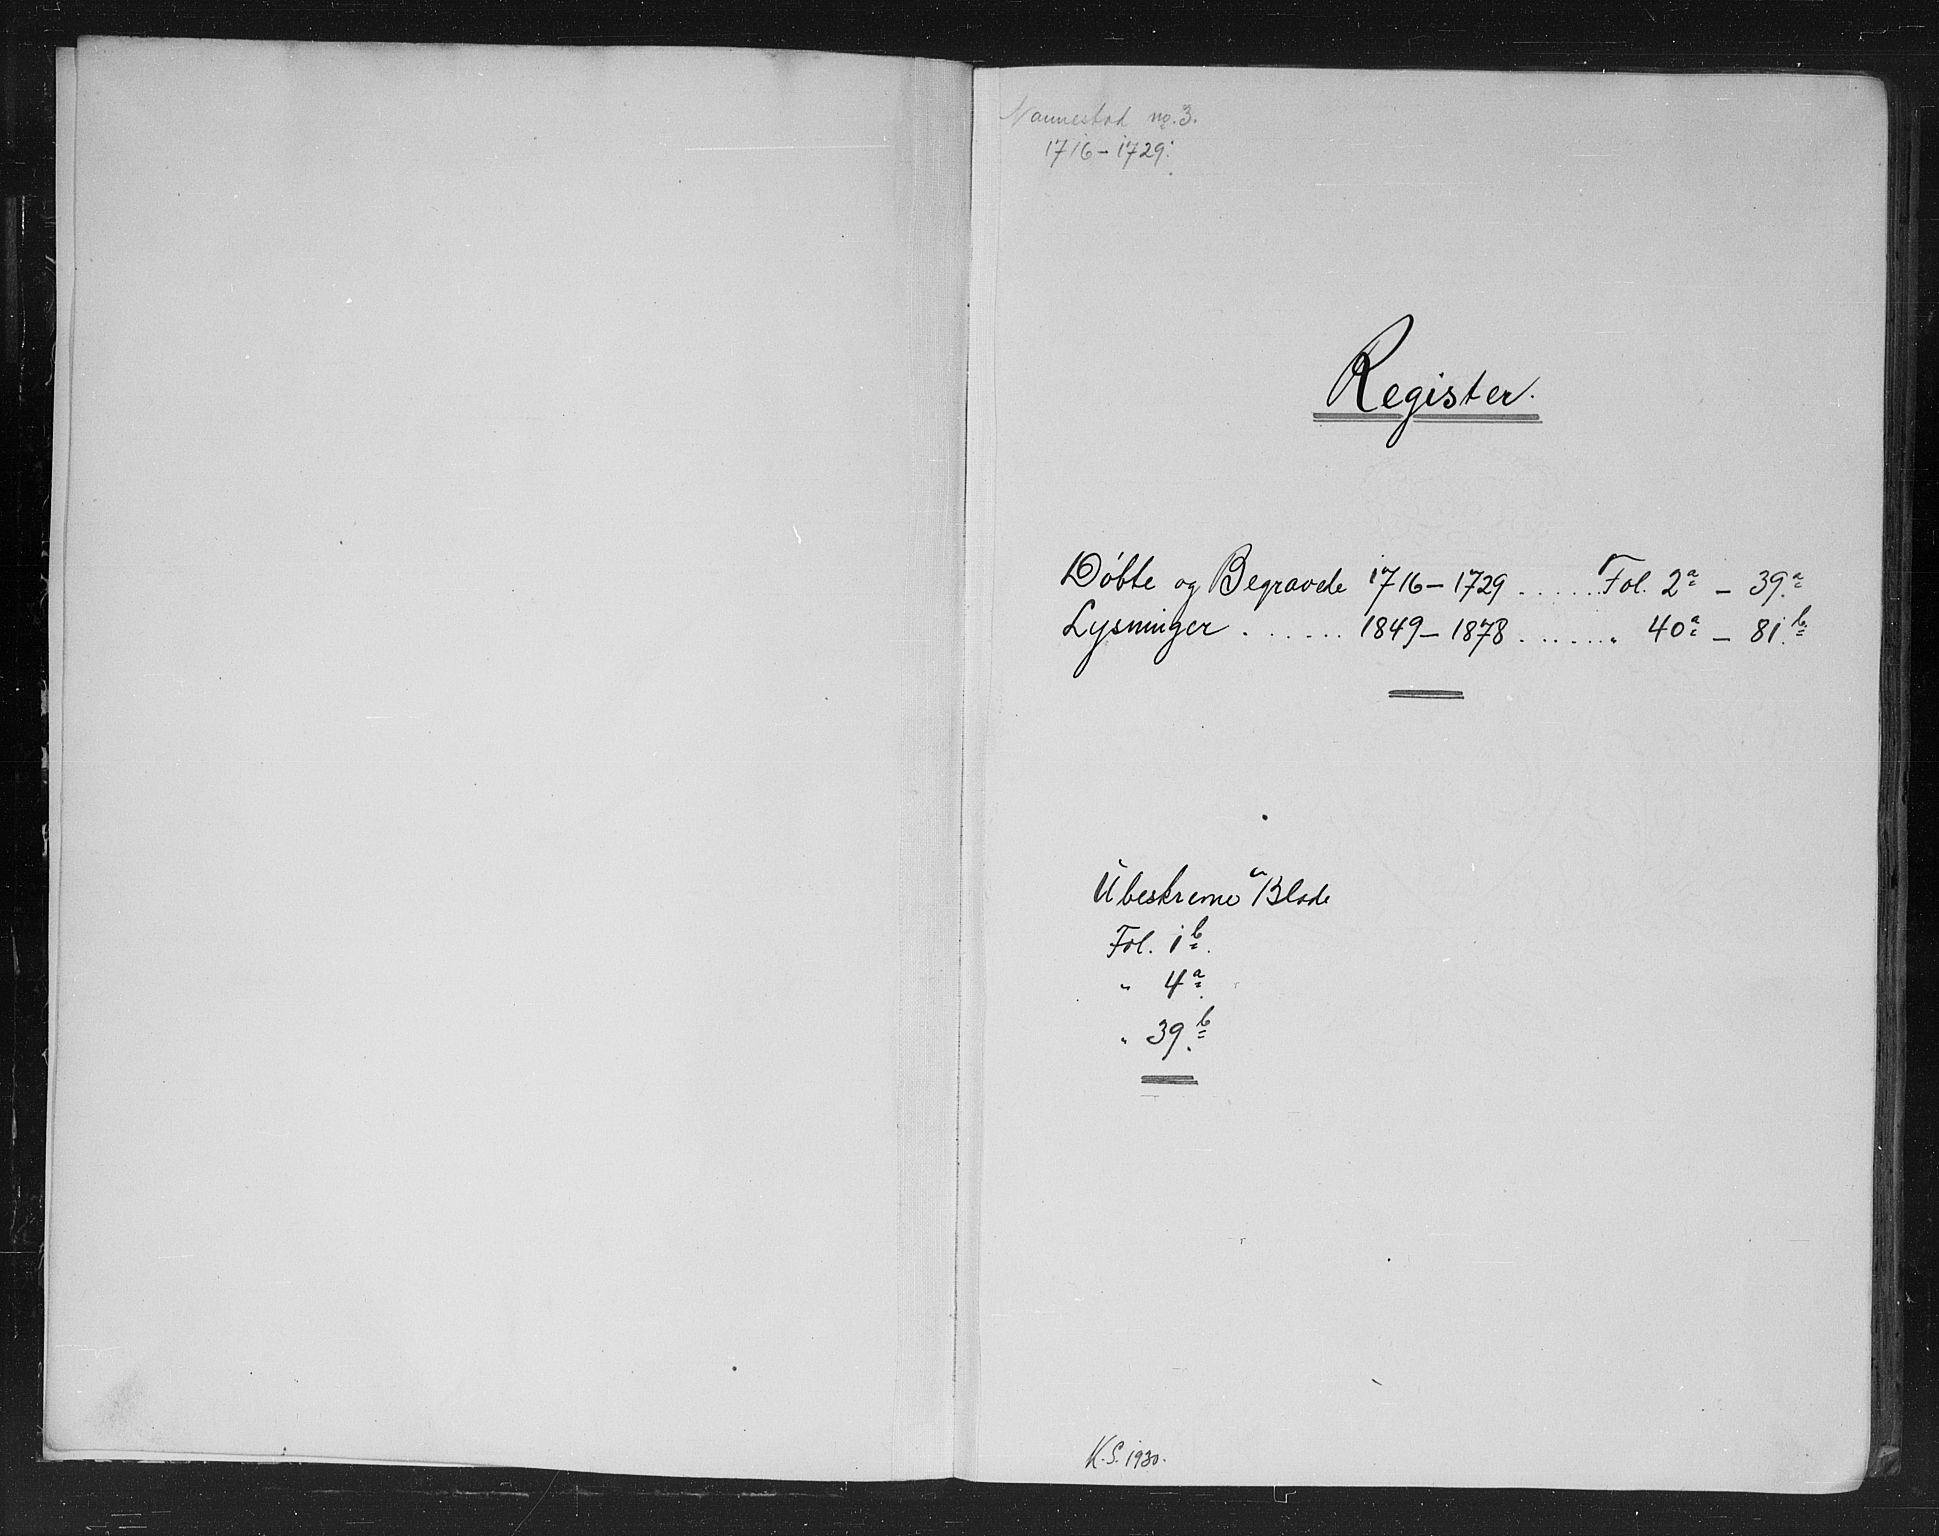 Nannestad no. 3.
1716–1729.
Register.
Döbte og Begravede 1716–1729 ...... Fol. 2a – 39a
Lysninger ...... 1849–1878 ...... " 40a – 81b
Ubeskrevne Blade
Fol. 1b.
" 4a
" 39b
K.S. 1930.